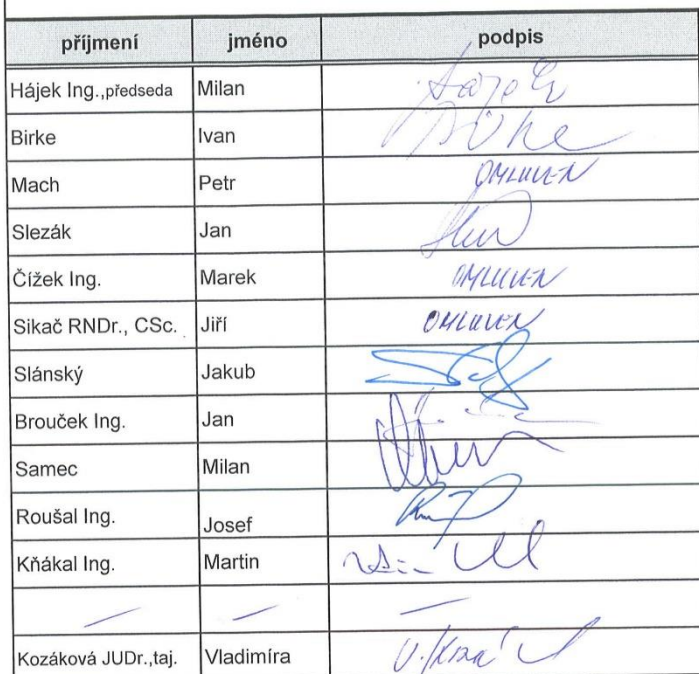 příjmení jméno podpis
Hájek Ing.,předseda Milan
Birke Ivan
Mach Petr OMLUVEN
Slezák Jan
Čížek Ing. Marek OMLUVEN
Sikač RNDr., CSc. Jiří OMLUVEN
Slánský Jakub
Brouček Ing. Jan
Samec Milan
Roušal Ing. Josef
Kňákal Ing. Martin
— — —
Kozáková JUDr.,taj. Vladimíra